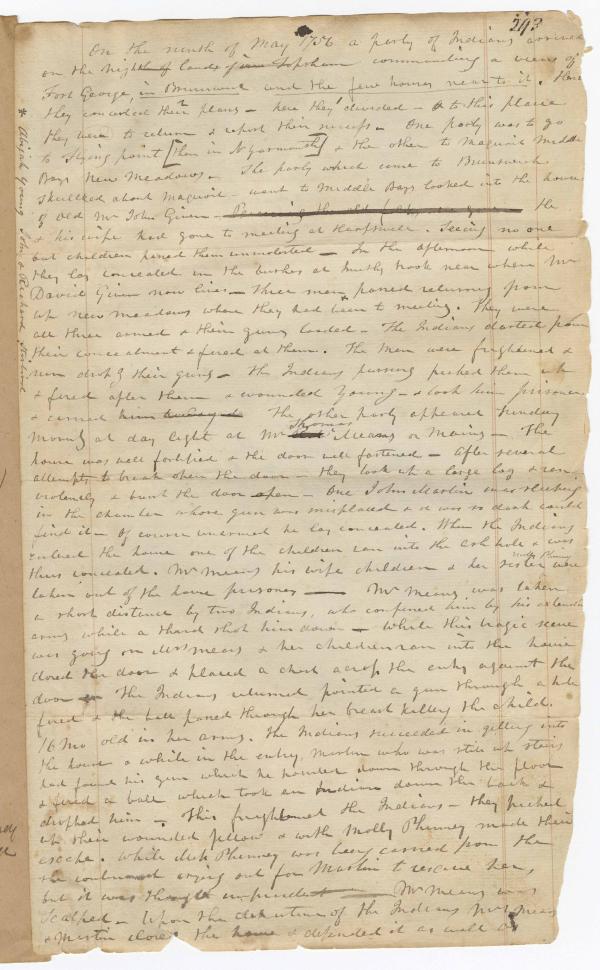 243
On the ninth of May 1756 a party of Indians arrived
on the high lands of Topsham commanding a view of
Fort George, in Brunswick and the few houses near to it. Here
they concocted their plans – here they divided – & to this place
they were to return & report their success – One party was to go
to Flying point [then in N Yarmouth] & the other to Maquoit Middle
Bays New Meadows – The party which came to Brunswick
skulked about Maquoit – went to Middle Bays looked into the house
of old Mr John Given – He
& his wife had gone to meeting at Harpswell. Seeing no one
but children passed them unmolested – In the afternoon while
they lay concealed in the bushes at brook near where Mr
David Given now lives – three men passed returning from
new meadows where they had been * to meeting. They were
all three armed & their guns loaded – The Indians darted from
their concealment & fired at them. The men were frightened &
run dropg their guns – The Indians pursuing picked them up
& fired after them & wounded Young – & took him prisoner
& carried The other party appeared Sunday
morng at day light at Mr Thomas Means or Mains – The
house was well fortified & the door well fastened – After several
attempts to break open the door – they took up a large log & ran
violently & burst the door open – One John Martin was sleeping
in the chamber whose gun was misplaced & it was so dark could
find it – of course unarmed he lay concealed. When the Indians
entered the house one of the children ran into the ash hole & was
thus concealed. Mr Means his wife children & her sister Molly Phinney were
taken out of the house prisoners – Mr Means was taken
a short distance by two Indians, who confined him by his extended
arms while a third shot him down – While this tragic scene
was going on Mrs Means & her children ran into the house
closed the door & placed a chest across the entry against the
door The Indians returned pointed a gun through a hole
fired & the ball passed through her breast killing the child
16 mo old in her arms. The Indians succeeded in getting into
the house & while in the entry, Martin who was still up stairs
had found his gun which he pointed down through the floor
& fired a ball which took an Indian down the back &
dropped him – This frightened the Indians – they picked
up their wounded fellow & with Molly Phinney made their
escape. While Miss Phinney was being carried from the
she continued crying out for Martin to rescue her,
but it was thought imprudent – Mr Means was
Scalped – Upon the departure of the Indians Mrs Means
& Martin closed the house & defended it as well as
* Abijah Young John & Richard Starbird